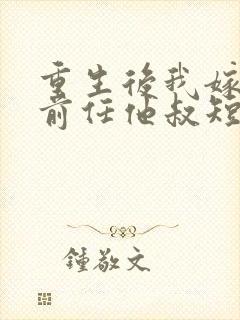 重生後我嫁
前任他叔短
鍾敬文